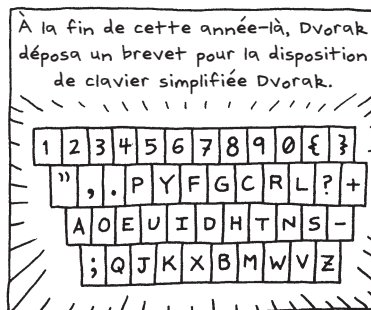 À la fin de cette année-là, Dvorak
déposa un brevet pour la disposition
de clavier simplifiée Dvorak.
1 2 3 4 5 6 7 8 9 0 { }
" , . P Y F G C R L ? +
A O E U I D H T N S -
; Q J K X B M W V Z